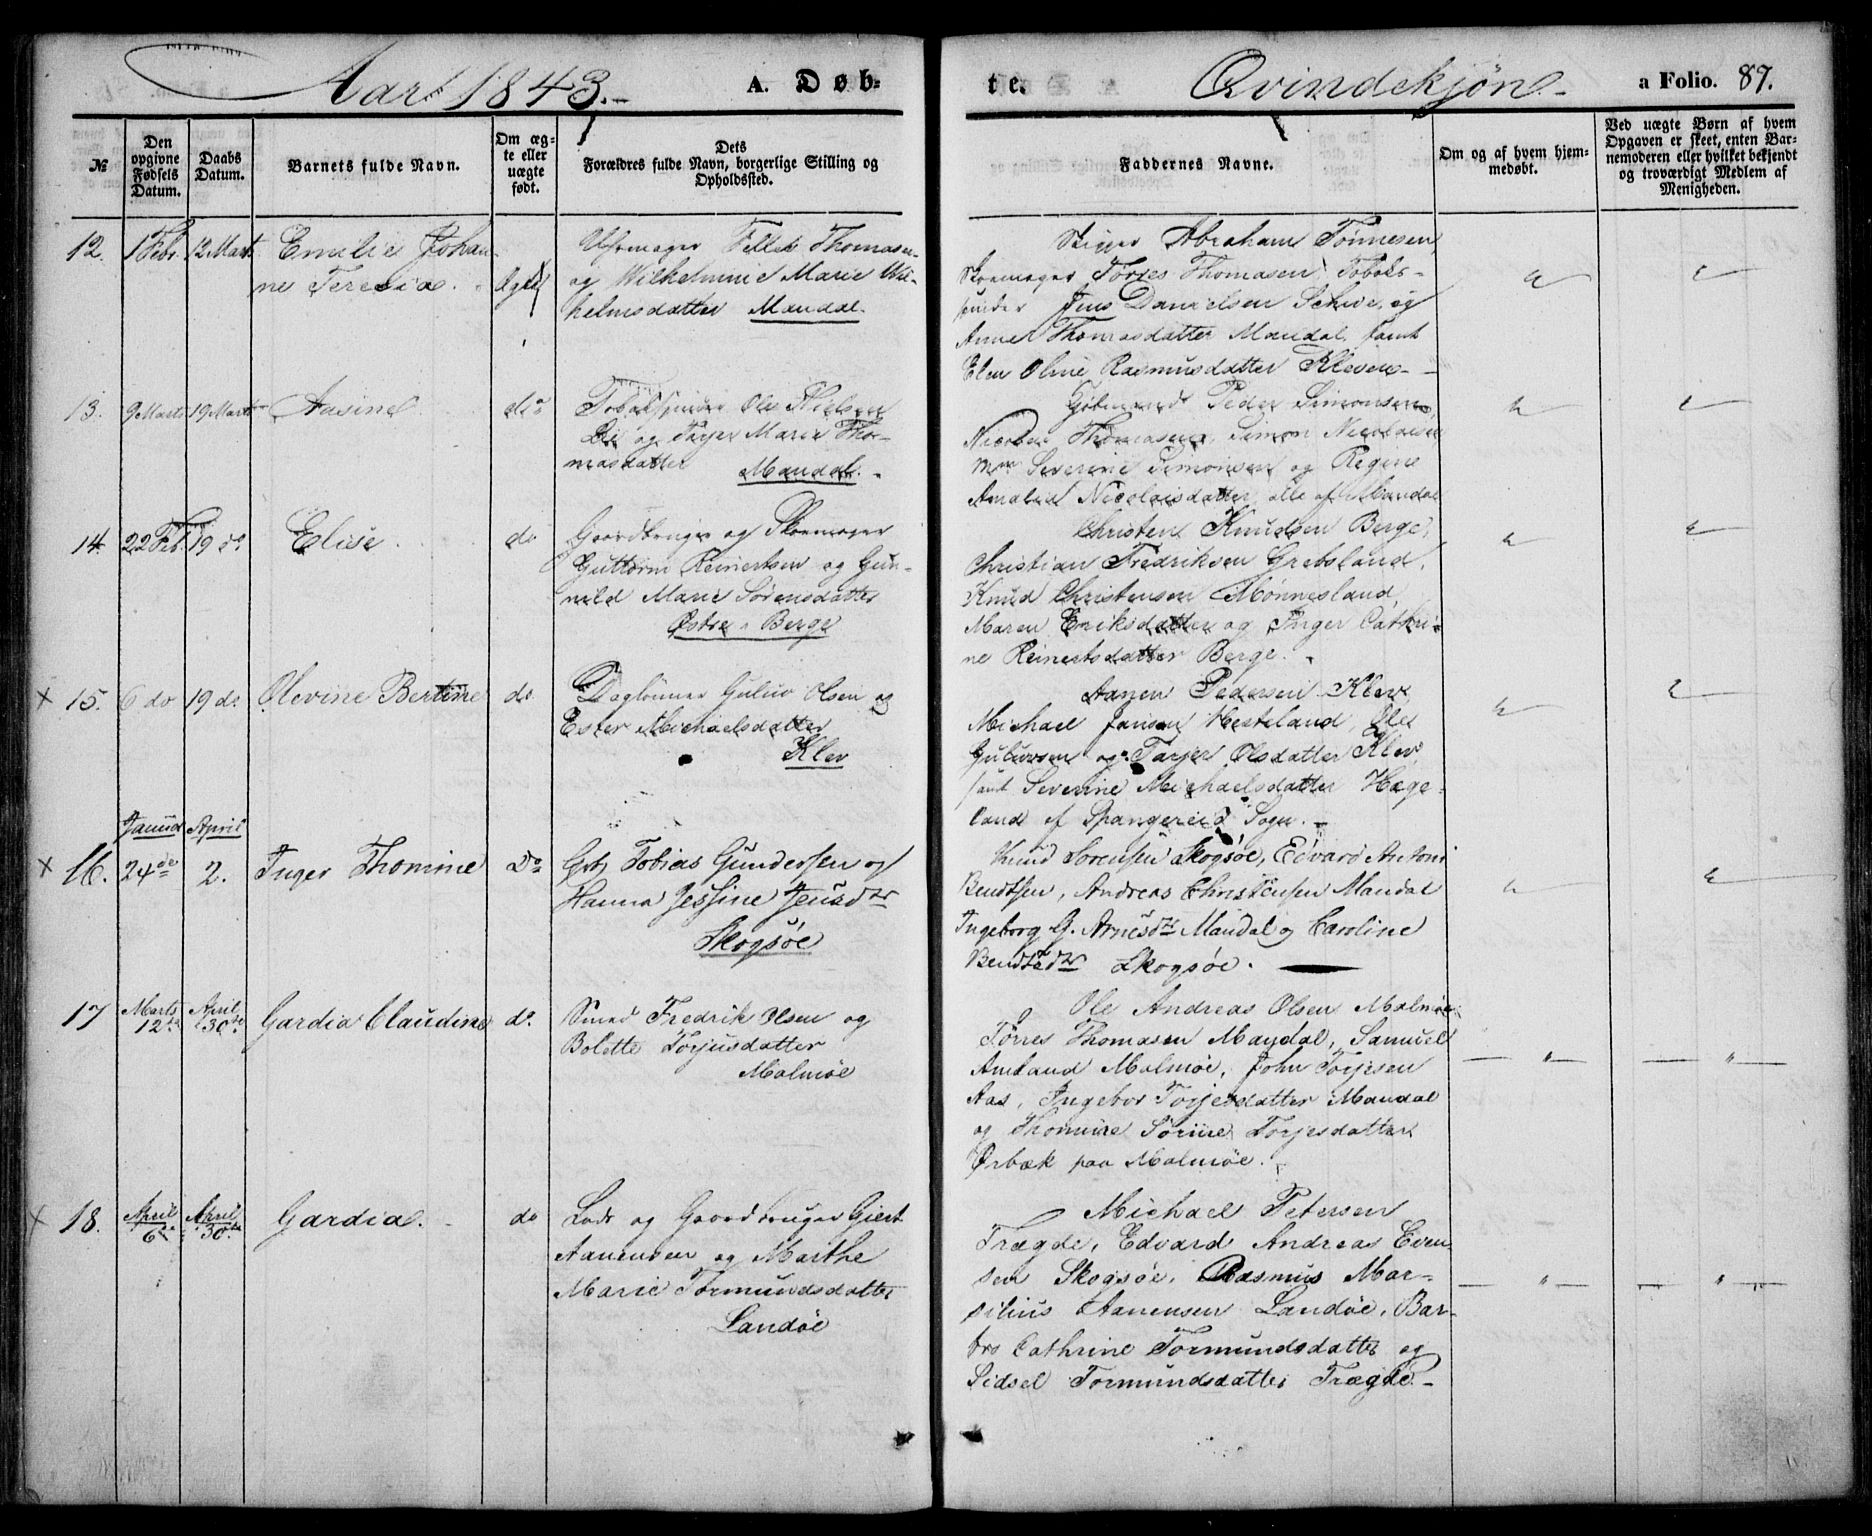 Aar 1843.
A. Døb-
te.
Qvindekjøn.
a Folio. 87.
№
Den opgivne Fødsels Datum.
Daabs Datum.
Barnets fulde Navn.
Om ægte eller uægte født.
Dets
Forældres fulde Navn, borgerlige Stilling og
Opholdssted.
Faddernes Navne.
Om og af hvem hjemmedøbt.
Ved uægte Børn af hvem
Opgaven er skeet, enten Bar-
nemoderen eller hvilket bekjendt
og troværdigt Medlem af
Menigheden.
12. 1 Febr. 12 Marts Emilie Johan-
ne Teresia. Ægte
Uhrmager Thomasen
og Wilhelmine Marie Wil-
helmsdatter Mandal.
Skipper Abraham Tønnesen,
Skoemager Tørres Thomasen, Tobaks-
spinder Jens Danielsen Schive, og
Anne Thomasdatter Mandal, samt
Elen Oline Rasmusdatter Kleven
13. 9 Marts 19 Marts Aasine do
Tobakspinder Ole Nielsen
Lie og Tarjer Marie Tho-
masdatter Mandal.
Peder Simonsen,
Nicolai Thomasen, Simon Nicolaisen
Mm Severine Simonsen og Regine
Amalia Nicolaisdatter, alle af Mandal
14. 22 Feb. 19 do Elise do
Gaardbruger og Skoemager
Guttorm Reinertsen og Gun-
nild Marie Sørensdatter
Østre Berge
Christen Knudsen Berge,
Christian Fredriksen Grebsland,
Knud Christensen Mønnesland,
Maren Eriksdatter og Inger Cathri-
ne Reinertsdatter Berge.
× 15. 6 do 19 do. Olevine Bertine do
Daglønner Guluv Olsen og
Ester Michaelsdatter
Klev
Aanen Pedersen Klev
Michael Jansen Vesteland, Ole
Gulufsen og Tarjer Olsdatter Klev,
samt Severine Michaelsdatter Hæge-
land af Spangereid Sogn.
× 16. Januar 24de April 2. Inger Thomine Do
Grb Tobias Gundersen og
Hanna Jessine Jensdtr
Skogsøe
Knud Sorensen Skogsøe, Edvard Antoni
Bendtsen, Andreas Christensen Mandal
Ingeborg G. Arnesdtr Mandal og Caroline
Bendtsdtr Skogsøe.
17 Marts 12te April 30te Gardia Claudine do.
Smed Fredrik Olsen og
Bolette Torjusdatter
Malmøe
Ole Andreas Olsen Malmøe
Tørres Thomasen Mandal, Samuel
Amland Malmøe, John Torjesen
Aas, Ingebor Torjesdatter Mandal
og Thomine Sorine Torjesdatter
Ørbæk paa Malmøe.
× 18. April 6te April 30te Gardia. do
Lods og Gaardbruger Giert
Aanensen og Marthe
Marie Tormundsdatter
Landøe
Michael Petersen
Trægde, Edvard Andreas Even-
sen Skogsøe, Rasmus Mar-
silius Aanensen Landøe, Bar-
bro Cathrine Tormundsdatter og
Sidsel Tormundsdatter Trægde.